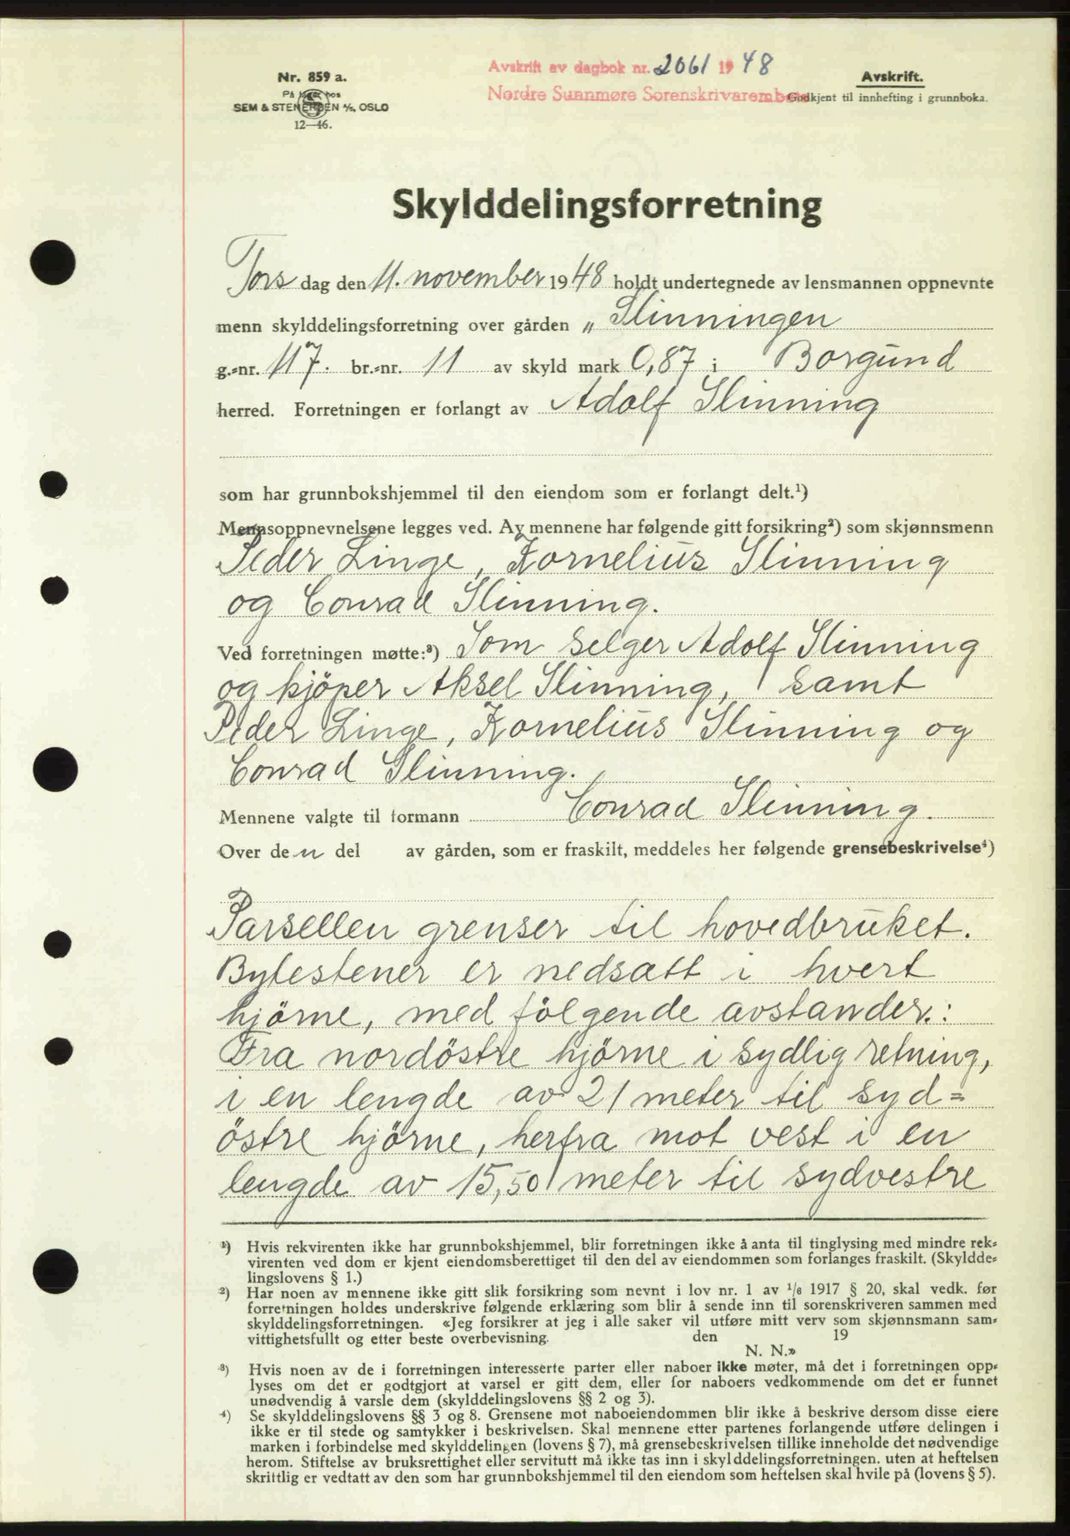 Nr. 859 a.
På lager hos
SEM & STENERSEN A/S, OSLO
12—46.
Avskrift av dagbok nr. 2061 1948
Nordre Sunnmøre Sorenskriverembete
Avskrift.
Godkjent til innhefting i grunnboka.
Skylddelingsforretning
Tors dag den 11. november 1948 holdt undertegnede av lensmannen oppnevnte
menn skylddelingsforretning over gården „ Slinningen
g.-nr. 117. br.-nr. 11 av skyld mark 0,87 i Borgund
herred. Forretningen er forlangt av Adolf Slinning
som har grunnbokshjemmel til den eiendom som er forlangt delt.¹)
Mennsoppnevnelsene legges ved. Av mennene har følgende gitt forsikring²) som skjønnsmenn
Peder Linge, Kornelius Slinning
og Conrad Slinning.
Ved forretningen møtte:³) Som selger Adolf Slinning
og kjöper Aksel Slinning, samt
Peder Linge, Kornelius Slinning og
Conrad Slinning.
Mennene valgte til formann Conrad Slinning.
Over den del av gården, som er fraskilt, meddeles her følgende grensebeskrivelse⁴)
Parsellen grenser til hovedbruket.
Bytestener er nedsatt i hvert
hjörne, med fölgende avstander.:
Fra nordöstre hjörne i sydlig retning,
i en lengde av 21 meter til syd=
östre hjörne, herfra mot vest i en
lengde av 15,50 meter til sydvestre
¹) Hvis rekvirenten ikke har grunnbokshjemmel, blir forretningen ikke å anta til tinglysing med mindre rek-
virenten ved dom er kjent eiendomsberettiget til den del av eiendommen som forlanges fraskilt. (Skyldde-
lingslovens § 1.)
²) Har noen av mennene ikke gitt slik forsikring som nevnt i lov nr. 1 av 1/6 1917 § 20, skal vedk. før
forretningen holdes underskrive følgende erklæring som blir å sende inn til sorenskriveren sammen med
skylddelingsforretningen. «Jeg forsikrer at jeg i alle saker vil utføre mitt verv som skjønnsmann sam-
vittighetsfullt og etter beste overbevisning. den 19
N. N.»
³) Hvis noen av de i forretningen interesserte parter eller naboer ikke møter, må det i forretningen opp-
lyses om det er godtgjort at varsel er gitt dem, eller for naboers vedkommende om det er funnet
unødvendig å varsle dem (skylddelingslovens §§ 2 og 3).
⁴) Se skylddelingslovens §§ 3 og 8. Grensene mot naboeiendommen blir ikke å beskrive dersom disse eiere
ikke er til stede og samtykker i beskrivelsen. Skal mennene etter partenes forlangende utføre delingen i
marken i forbindelse med skylddelingen (lovens § 7), må grensebeskrivelsen tillike inneholde det nødvendige
herom. Stiftelse av bruksrettighet eller servitutt må ikke tas inn i skylddelingsforretningen, uten at heftelsen
skriftlig er vedtatt av den som har grunnbokshjemmel til den eiendom som heftelsen skal hvile på (lovens § 5).